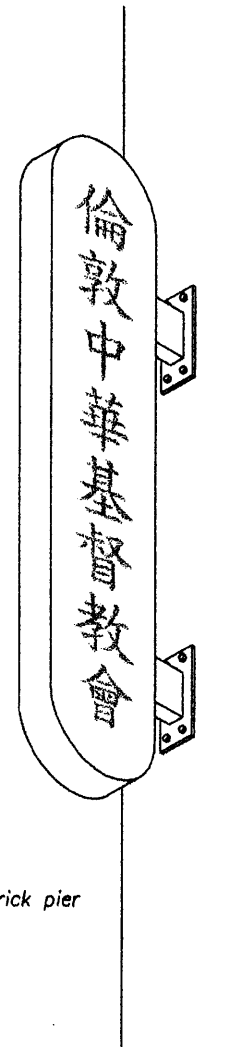 倫敦中華基督教會
rick pier